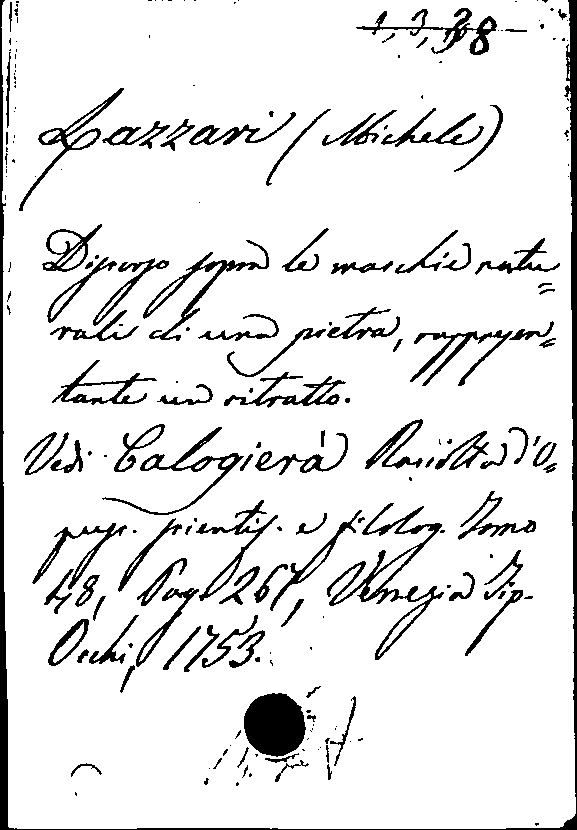 1, 3, 38
Lazzari (Michele)
Discorso sopra le macchie natu=
rali di una pietra, rappresen=
tante un ritratto.
Vedi Calogierà Raccolta d'O=
pusc. scientif. e filolog. Tomo
48, Pag. 267, Venezia Tip.
Occhi, 1753.